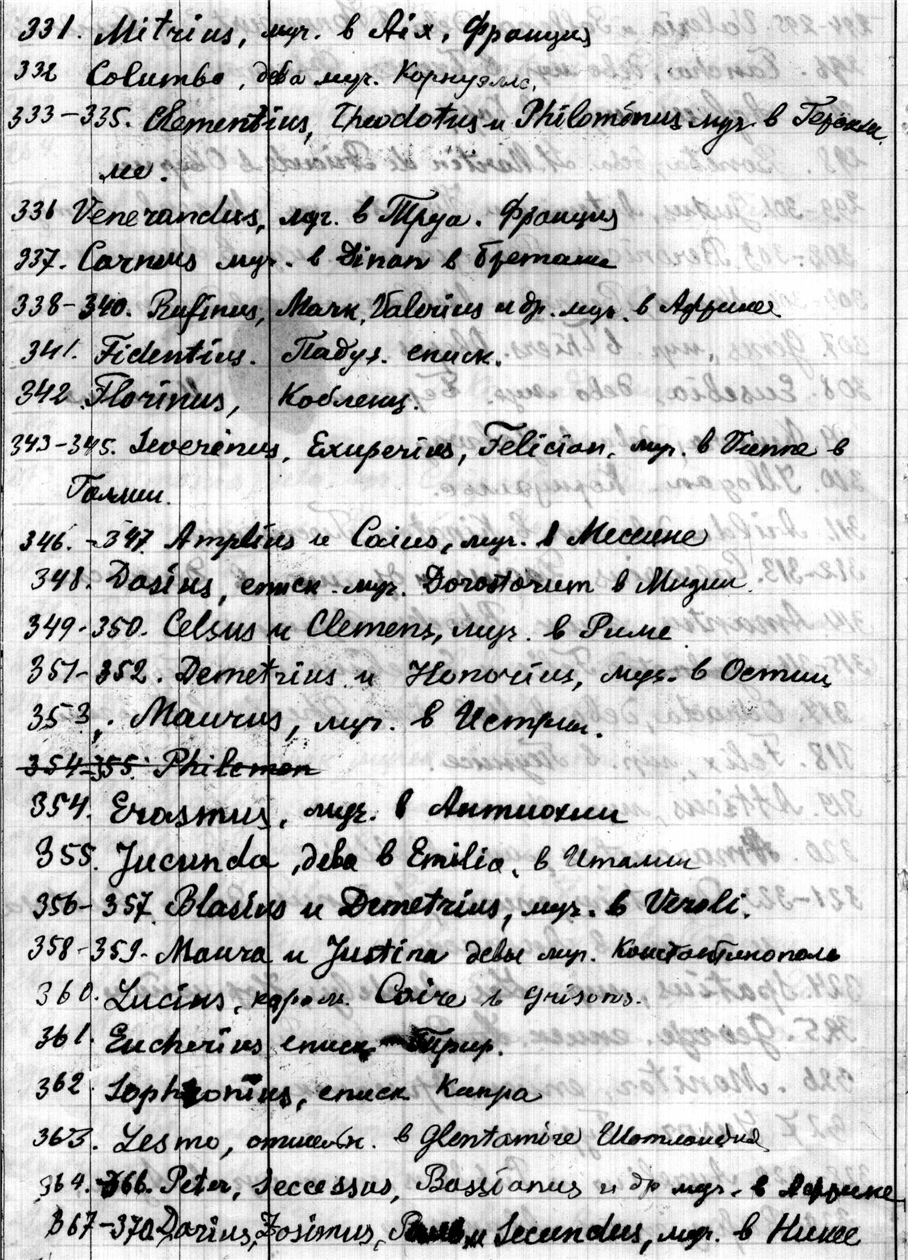 331. Mitrius, муч. в Aix, Франция
332 Columba, дева муч. Корнуэлс.
333-335. Clementius, Theodotus и Philomenus муч. в Геракли
ле.
336 Venerandus, муч. в Труа. Франция
337. Carnus муч. в Dinan в Бретани
338-340. Rufinus, Марк, Valerius и др. муч. в Африке
341. Fidentius. Падуя. еписк.
342. Florinus, Кобленц.
343-345. Severinus, Exuperius, Felician, муч. в Vienne в
Галлии.
346.-347 Amplius и Caius, муч. в Мессине
348. Dasius, еписк. муч. Dorostorum в Мизии.
349-350. Celsus и Clemens, муч. в Риме
351-352. Demetrius и Honorius, муч. в Остии
353. Maurus, муч. в Истрии.
354-355. Philemon
354. Erasmus, муч. в Антиохии
355. Jucunda, дева в Emilia, в Италии
356-357. Blasius и Demetrius, муч. в Veroli.
358-359. Maura и Justina девы муч. Константинополь
360. Lucius, король. Coire в Grisons.
361. Eucherius еписк. Трир.
362. Sophronius, еписк Кипра
363. Lesmo, отшельн. в Glentamire Шотландия
364.-366. Peter, Seccessus, Bassianus и др муч. в Африке
367-370 Darius, Zosimus, и Secundus, муч. в Никее